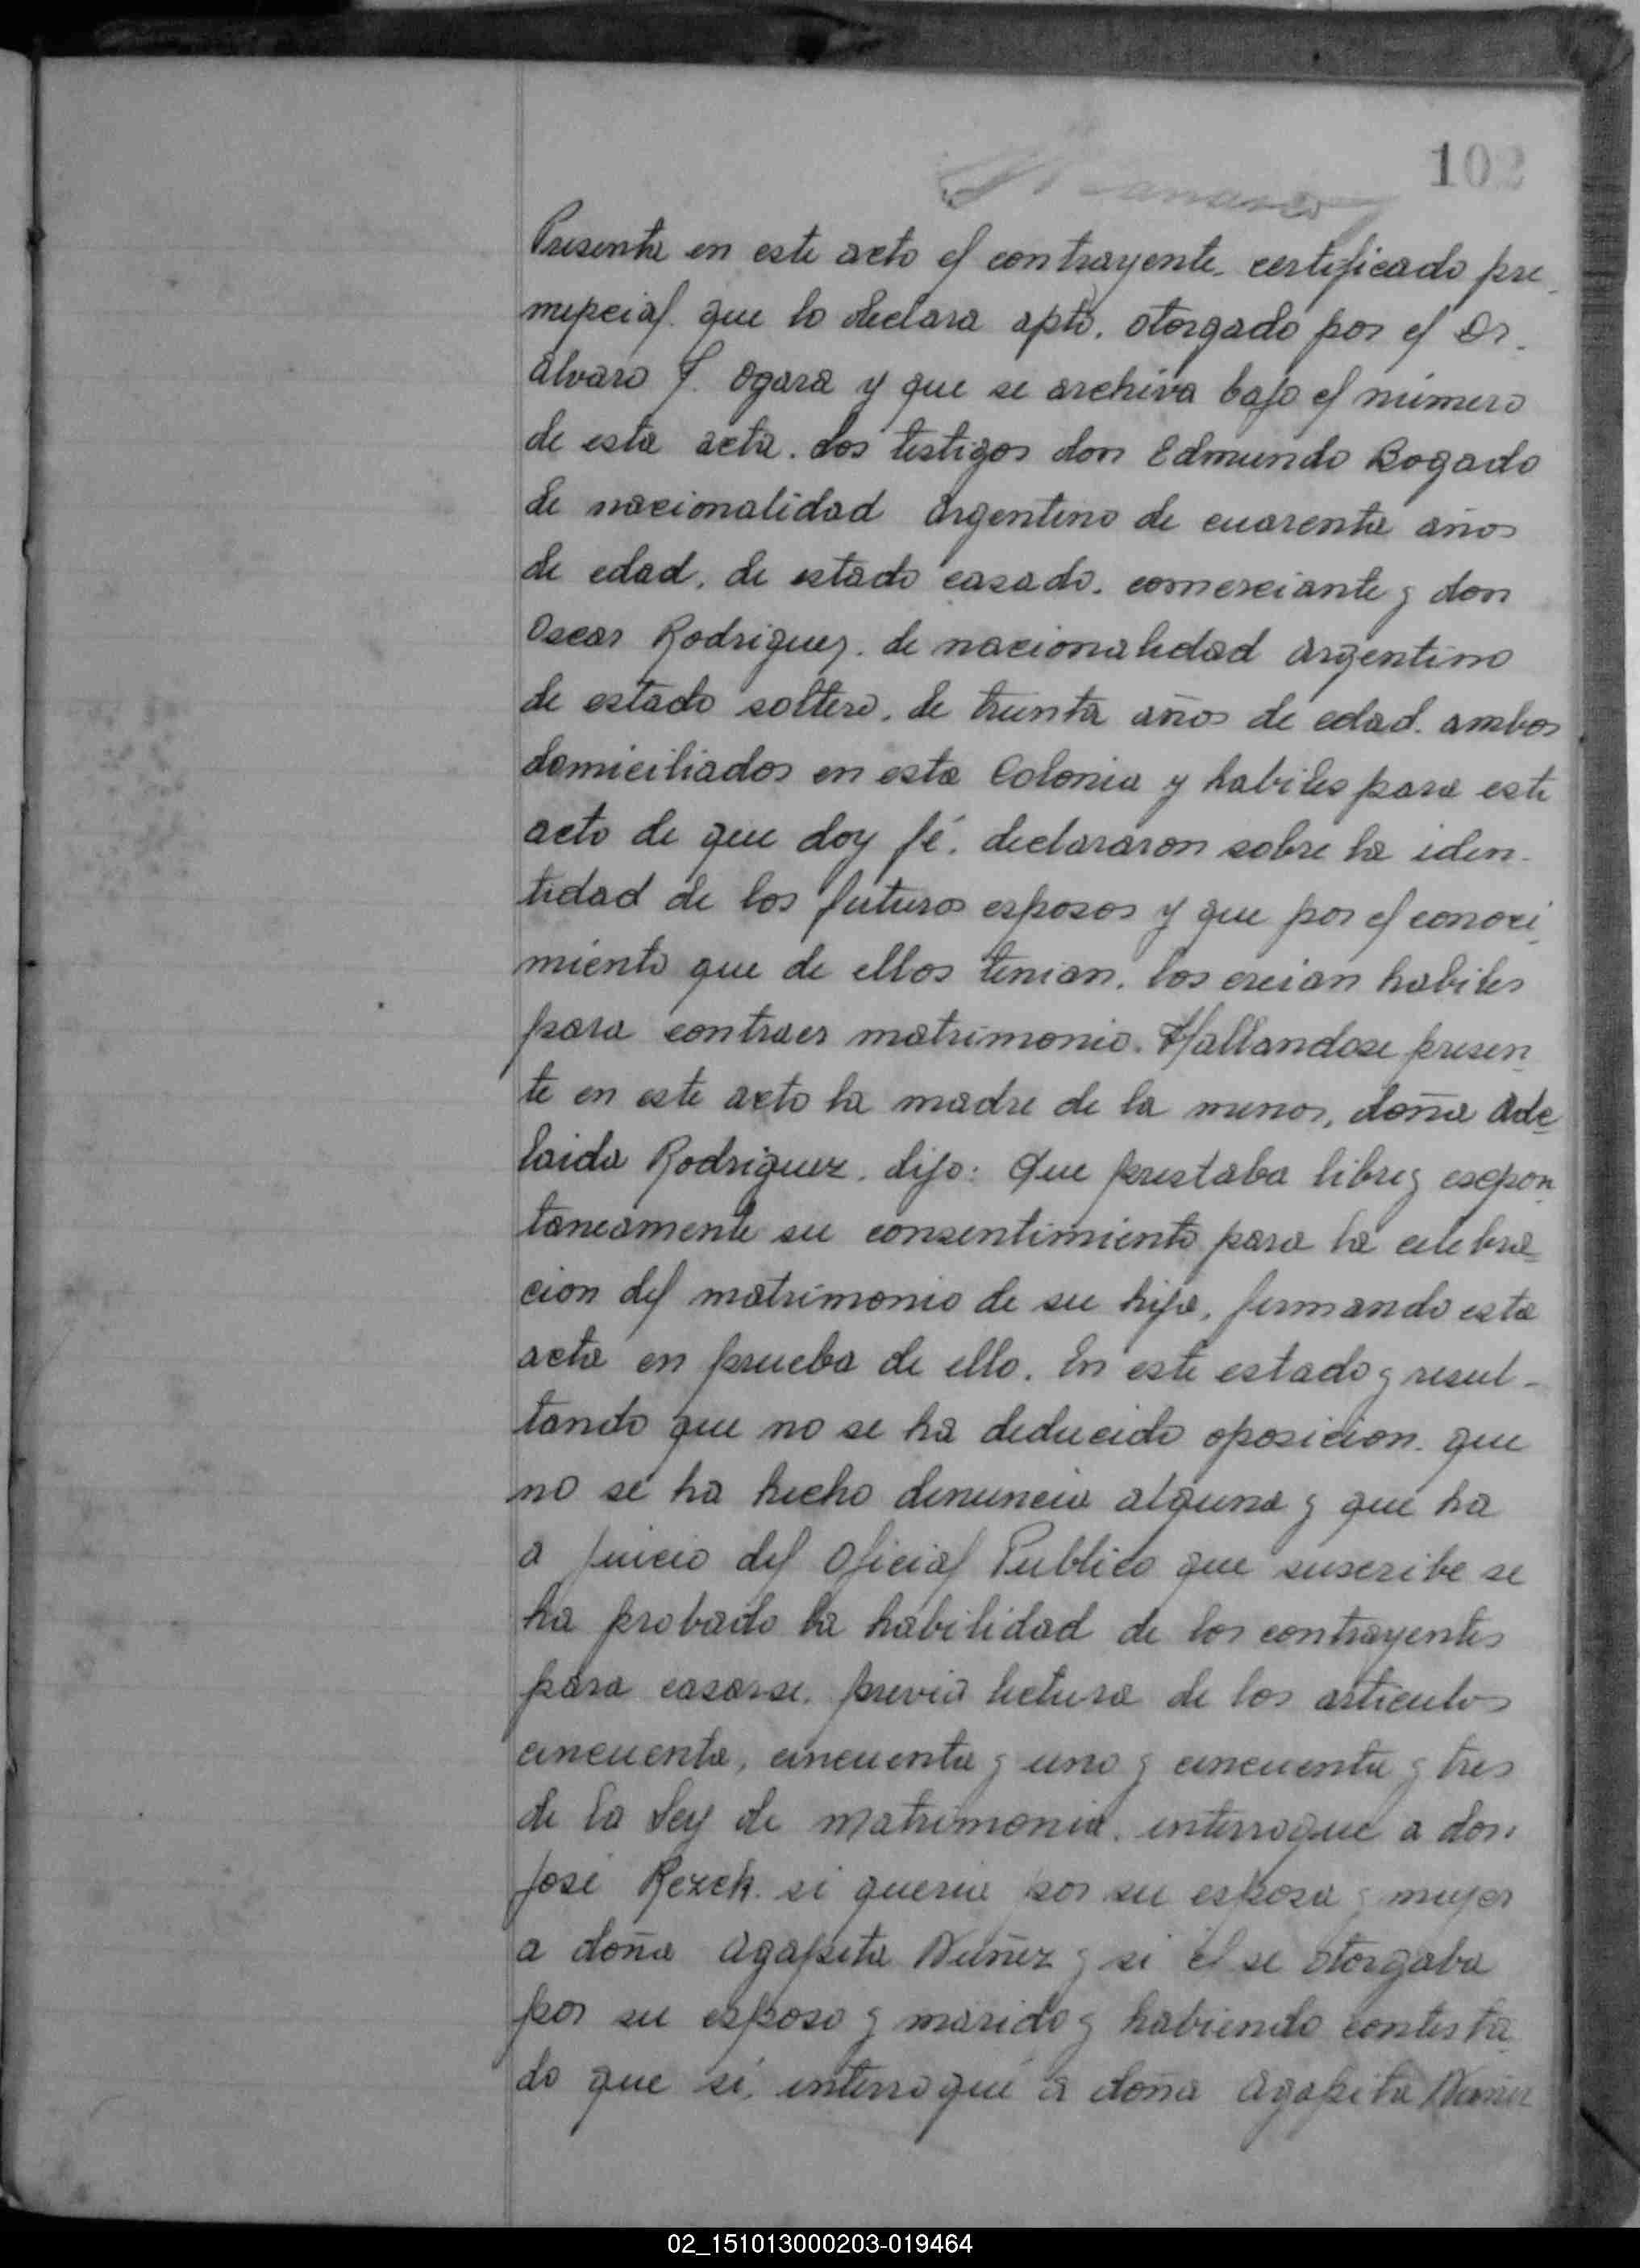 102
Presenta en este acto el contrayente. certificado pre-
nupcial. que lo declara apto. otorgado por el Dr.
Alvaro J. Ogara y que se archiva bajo el número
de esta acta. Los testigos don Edmundo Bogado
de nacionalidad Argentino de cuarenta años
de edad. de estado casado. comerciante y don
Oscar Rodriguez. de nacionalidad Argentino
de estado soltero. de treinta años de edad. ambos
domiciliados en esta Colonia y habiles para este
acto de que doy fé. declararon sobre la iden-
tidad de los futuros esposos y que por el conoci-
miento que de ellos tenian. los creian habiles
para contraer matrimonio. Hallandose presen-
te en este acto la madre de la menor, doña Ade-
laida Rodriguez. dijo: Que prestaba libre y espon-
taneamente su consentimiento para la celebra-
cion del matrimonio de su hija, firmando esta
acta en prueba de ello. En este estado y resul-
tando que no se ha deducido oposicion. que
no se ha hecho denuncia alguna y que ha
a juicio del Oficial Publico que suscribe se
ha probado la habilidad de los contrayentes
para casarse. previa lectura de los articulos
cincuenta, cincuenta y uno y cincuenta y tres
de la Ley de Matrimonio. interrogue a don
José Rezek. si queria por su esposa y mujer
a doña Agapita Nuñez y si él se otorgaba
por su esposo y marido y habiendo contesta-
do que si, interrogué a doña Agapita Nuñez
02_151013000203-019464